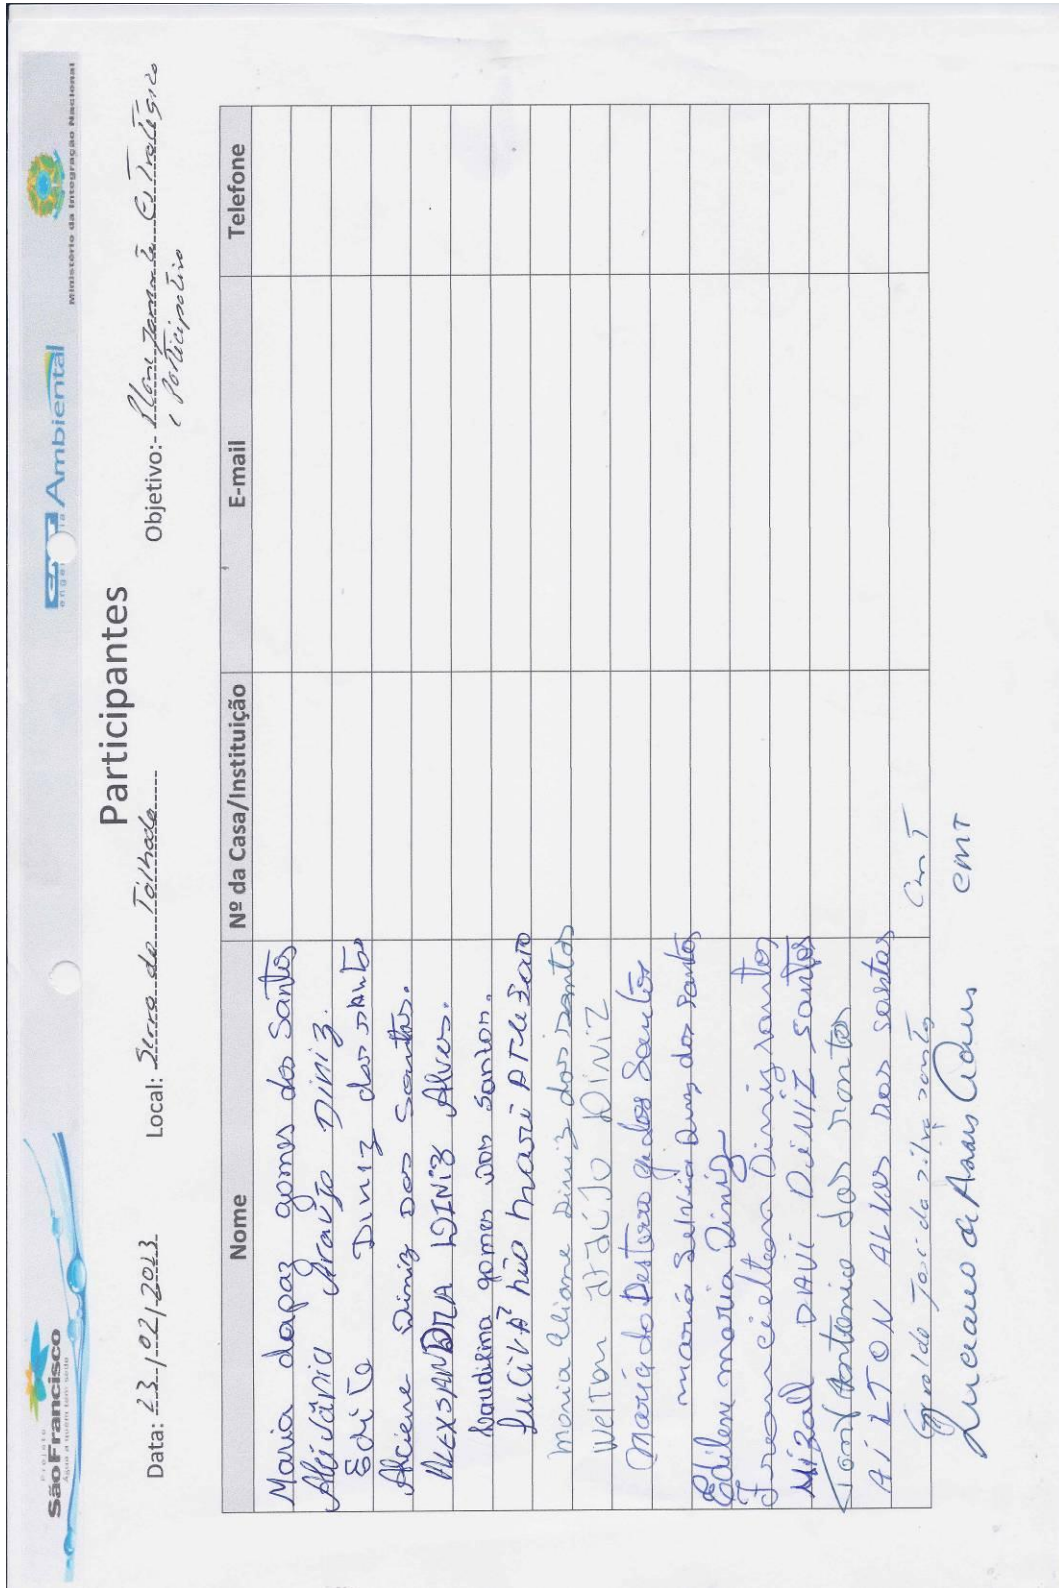 Projeto
São Francisco
Água a quem tem sede
Ambiental
Ministério da Integração Nacional
Participantes
Data: 23/02/2013 Local: Serra da Talhada Objetivo:- Planejamento Estratégico
e Participativo
Nome Nº da Casa/Instituição E-mail Telefone
Maria dapaz gomes dos Santos
Araujo Diniz.
Edite Diniz dos santos
Alciene Diniz Dos Santos.
ALEXSANDRA DINIZ Alves.
Laudilina gomes dos Santos.
Maria Eliane Diniz dos santos
Weltom araújo DiNiZ
Maria do Desterro G. dos Santos
maria Selvia dos santos
Edilene maria Diniz
Diniz santos
DAVI DiNiZ santos
Antonio dos santos
AiLTON ALves dos santos
Geraldo José da silva santos CMT
Luciano de Assis CMT